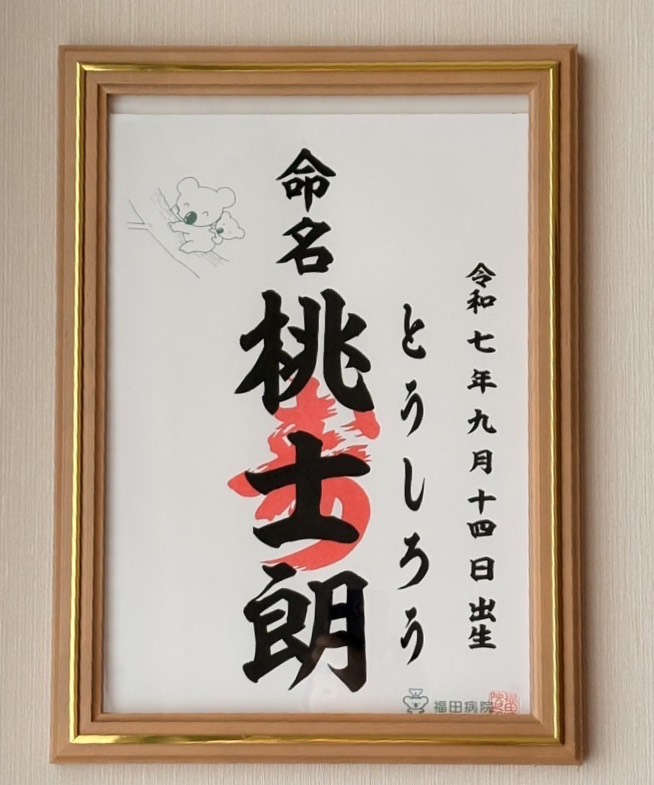 令和七年九月十四日出生
とうしろう
命名
桃士朗
福田病院